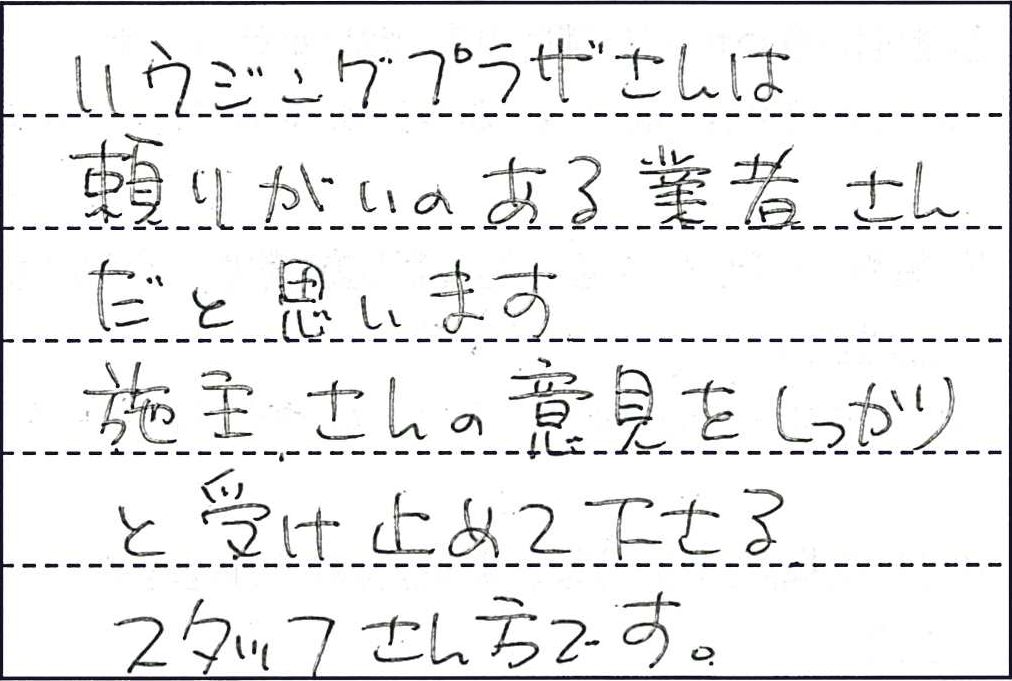 ハウジングプラザさんは
頼りがいのある業者さん
だと思います
施主さんの意見をしっかり
と受け止めて下さる
スタッフさん方です。